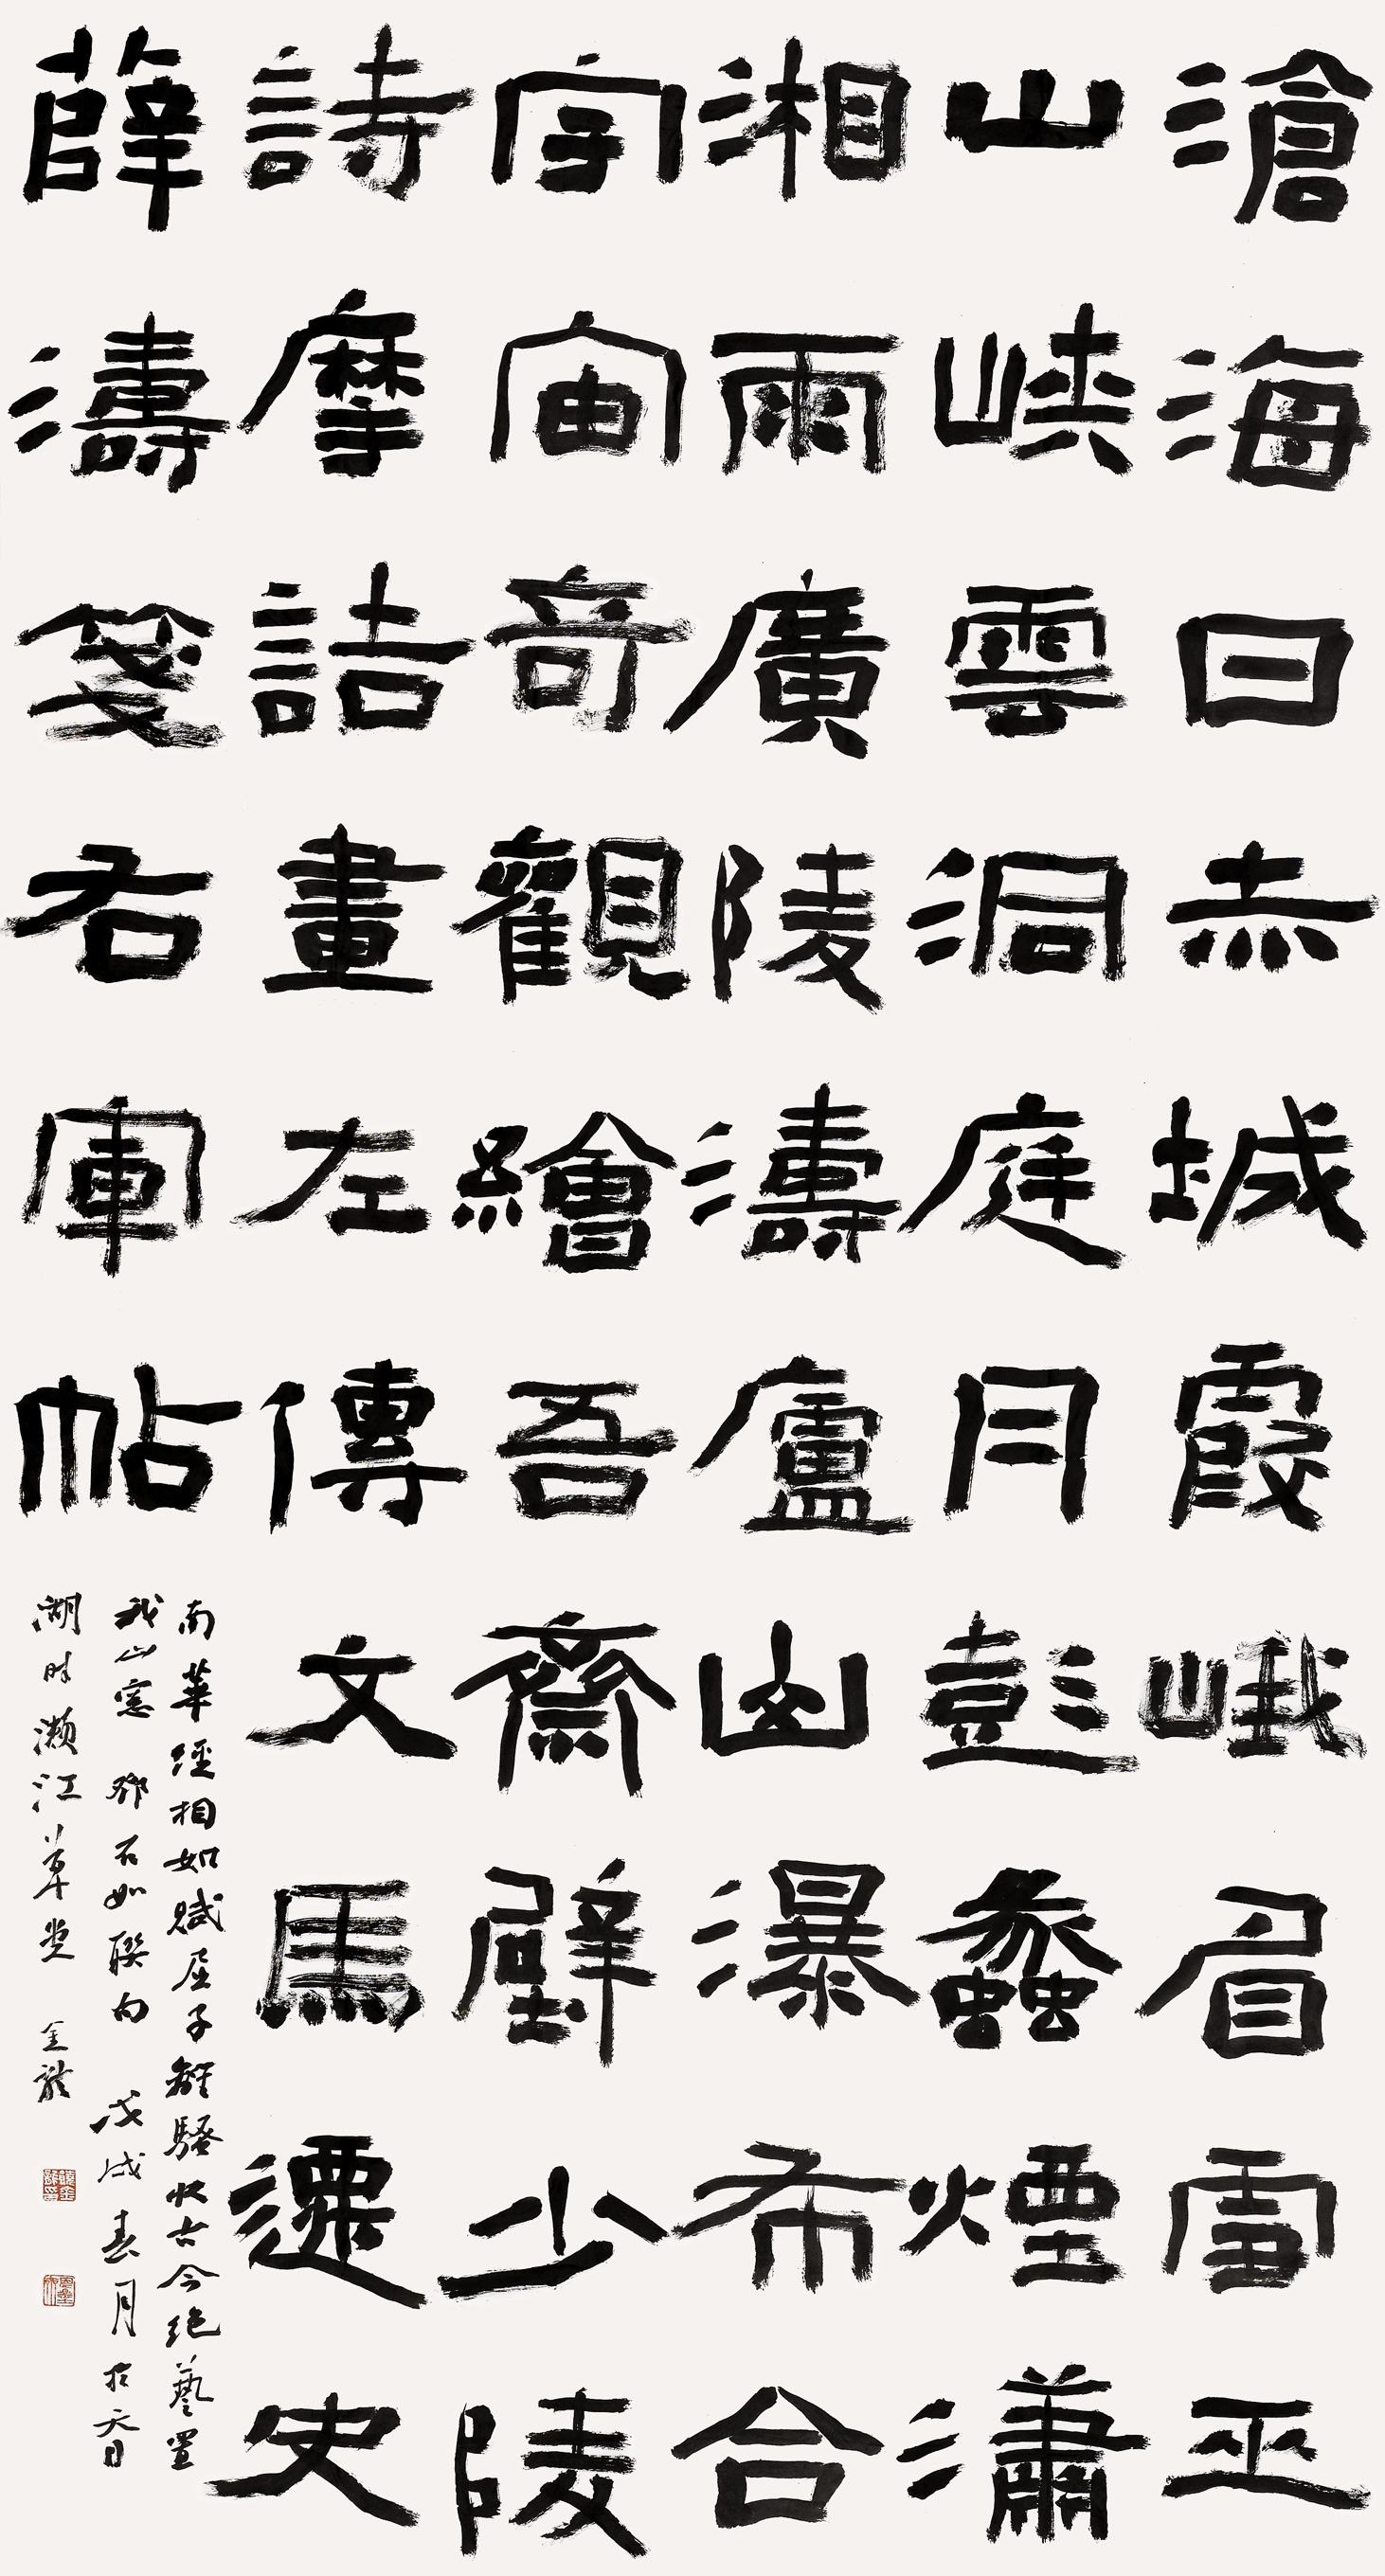 滄海日赤城霞峨眉雪巫
山峽雲洞庭月彭蠡煙瀟
湘雨廣陵濤廬山瀑布合
宇宙奇觀繪吾齋壁少陵
詩摩詰畫左傳文馬遷史
薛濤箋右軍帖
南華經相如賦屈子離騷收古今絕藝置
我山窓 鄧石如聯句 戊戌春月於天目
湖畔瀨江草堂 金龍